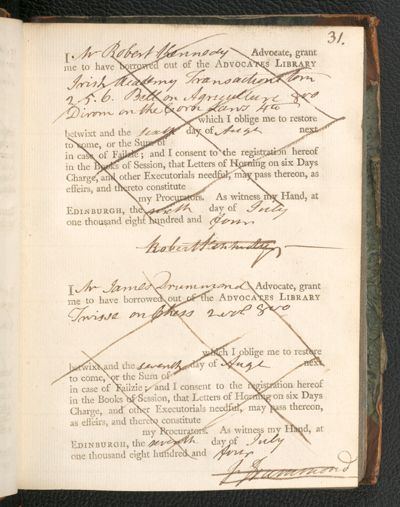 31.
I Mr Robert Kennedy Advocate, grant
me to have borrowed out of the ADVOCATES LIBRARY
Irish Academy Transactions tom
2. 5. 6. Bell on Agriculture 8vo
Dirom on the Corn Laws 4to
which I oblige me to restore
betwixt and the sixth day of Augt next
to come, or the Sum of
in case of Failzie; and I consent to the registration hereof
in the Books of Session, that Letters of Horning on six Days
Charge, and other Executorials needful, may pass thereon, as
effeirs, and thereto constitute
my Procurators. As witness my Hand, at
EDINBURGH, the sixth day of July
one thousand eight hundred and four
Robert Kennedy
I Mr James Drummond Advocate, grant
me to have borrowed out of the ADVOCATES LIBRARY
Twiss on Chess 2 vol 8vo
which I oblige me to restore
betwixt and the seventh day of Augt next
to come, or the Sum of
in case of Failzie; and I consent to the registration hereof
in the Books of Session, that Letters of Horning on six Days
Charge, and other Executorials needful, may pass thereon,
as effeirs, and thereto constitute
my Procurators. As witness my Hand, at
EDINBURGH, the seventh day of July
one thousand eight hundred and four
J Drummond